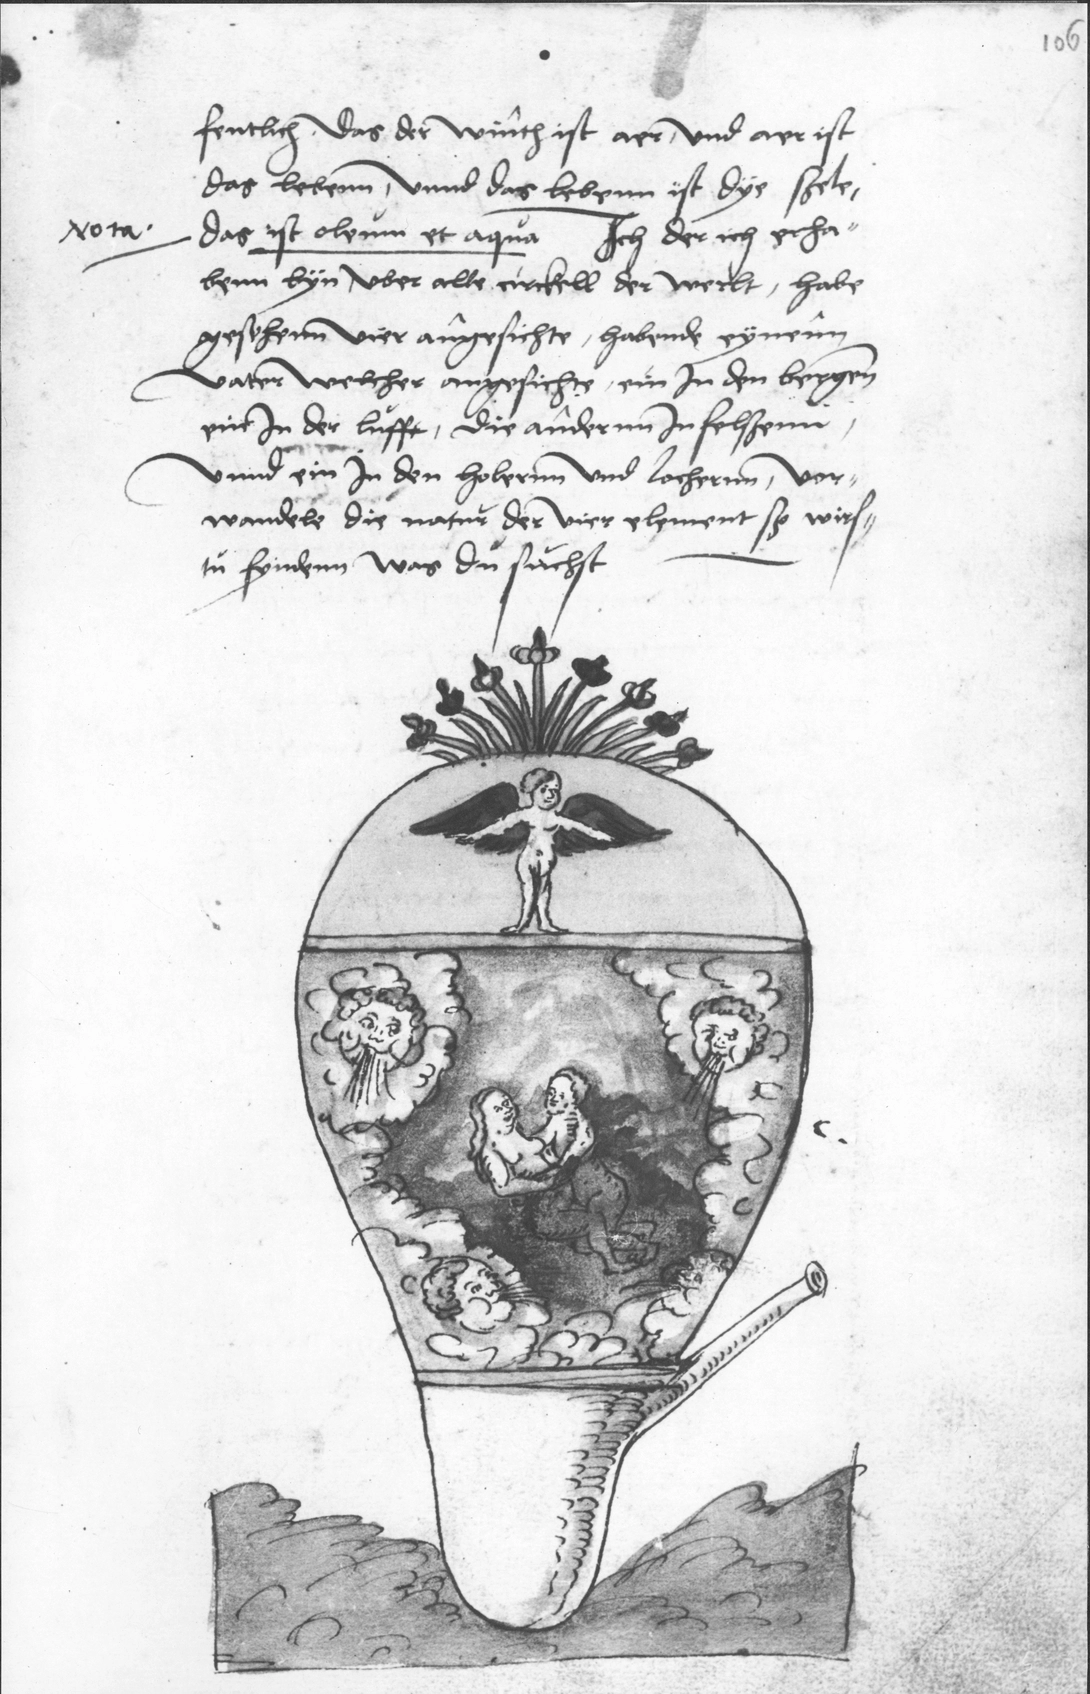 106
fentlich, das der winth ist aer, und aer ist
das lebenn, vnnd das lebenn ist dye szele,
Nota. das ist oleum et aqua Ich der ich erha=
benn byn vber alle circkell der werlt, habe
gesehenn vier angesichte, habende eynenn
vater welcher angesichte, ein In den bergen
ein In der lufft, die andernn In felszenn,
vnnd ein In den holernn vnd lochernn, vor=
wandele die natur der vier element so wirs=
tu fyndenn was du suchst
c.